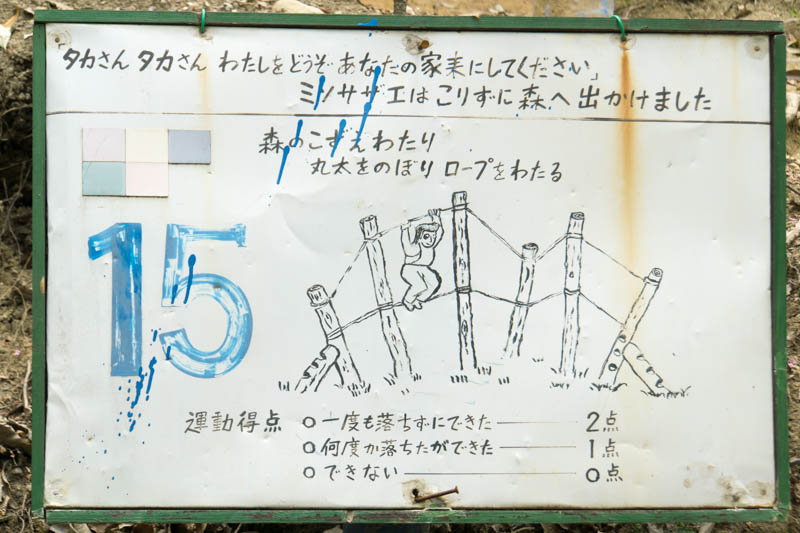 タカさん タカさん わたしをどうぞ あなたの家来にしてください」
ミソサザエは こりずに 森へ 出かけました
森のこずえわたり
丸太をのぼり ロープをわたる
15
運動得点 ○一度も落ちずにできた ―― 2点
○何度か落ちたができた ―― 1点
○できない ―― 0点